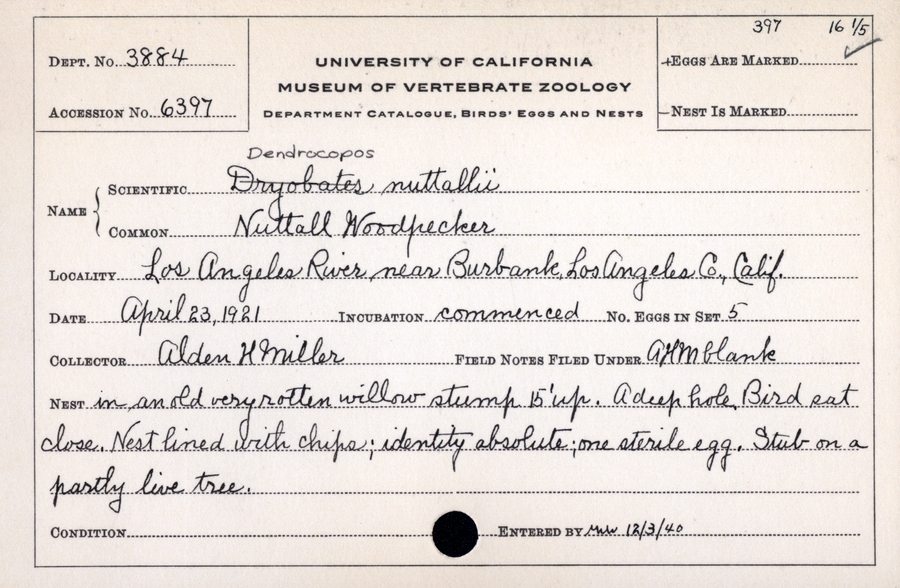 397 16 1/5
DEPT. No. 3884
UNIVERSITY OF CALIFORNIA
+EGGS ARE MARKED
MUSEUM OF VERTEBRATE ZOOLOGY
ACCESSION No. 6397
DEPARTMENT CATALOGUE, BIRDS' EGGS AND NESTS
—NEST IS MARKED
Dendrocopos
NAME { SCIENTIFIC Dryobates nuttallii
COMMON Nuttall Woodpecker
LOCALITY Los Angeles River, near Burbank, Los Angeles Co., Calif.
DATE April 23, 1921 INCUBATION commenced No. EGGS IN SET 5
COLLECTOR Alden H Miller FIELD NOTES FILED UNDER AHM blank
NEST in an old very rotten willow stump 15' up. A deep hole. Bird sat
close. Nest lined with chips; identity absolute; one sterile egg. Stub on a
partly live tree.
CONDITION ENTERED BY 12/3/40